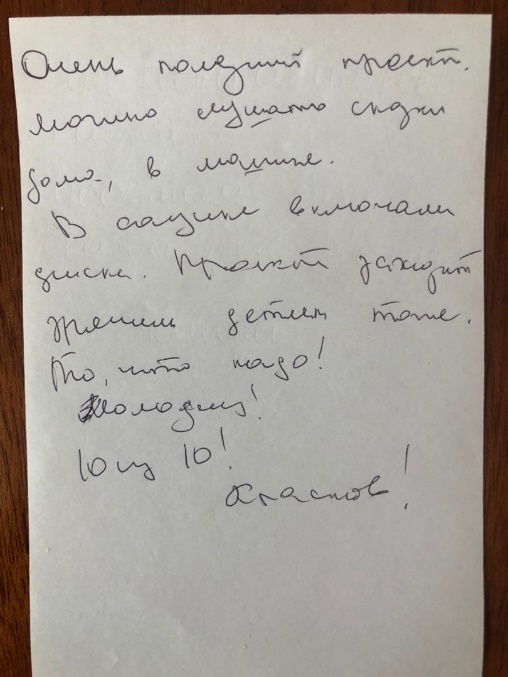 Очень полезный проект.
Можно слушать сказки
дома, в машине.
В машине включали
диски. Проект заходит
детям тоже.
То, что надо!
Молодцы!
10 из 10!